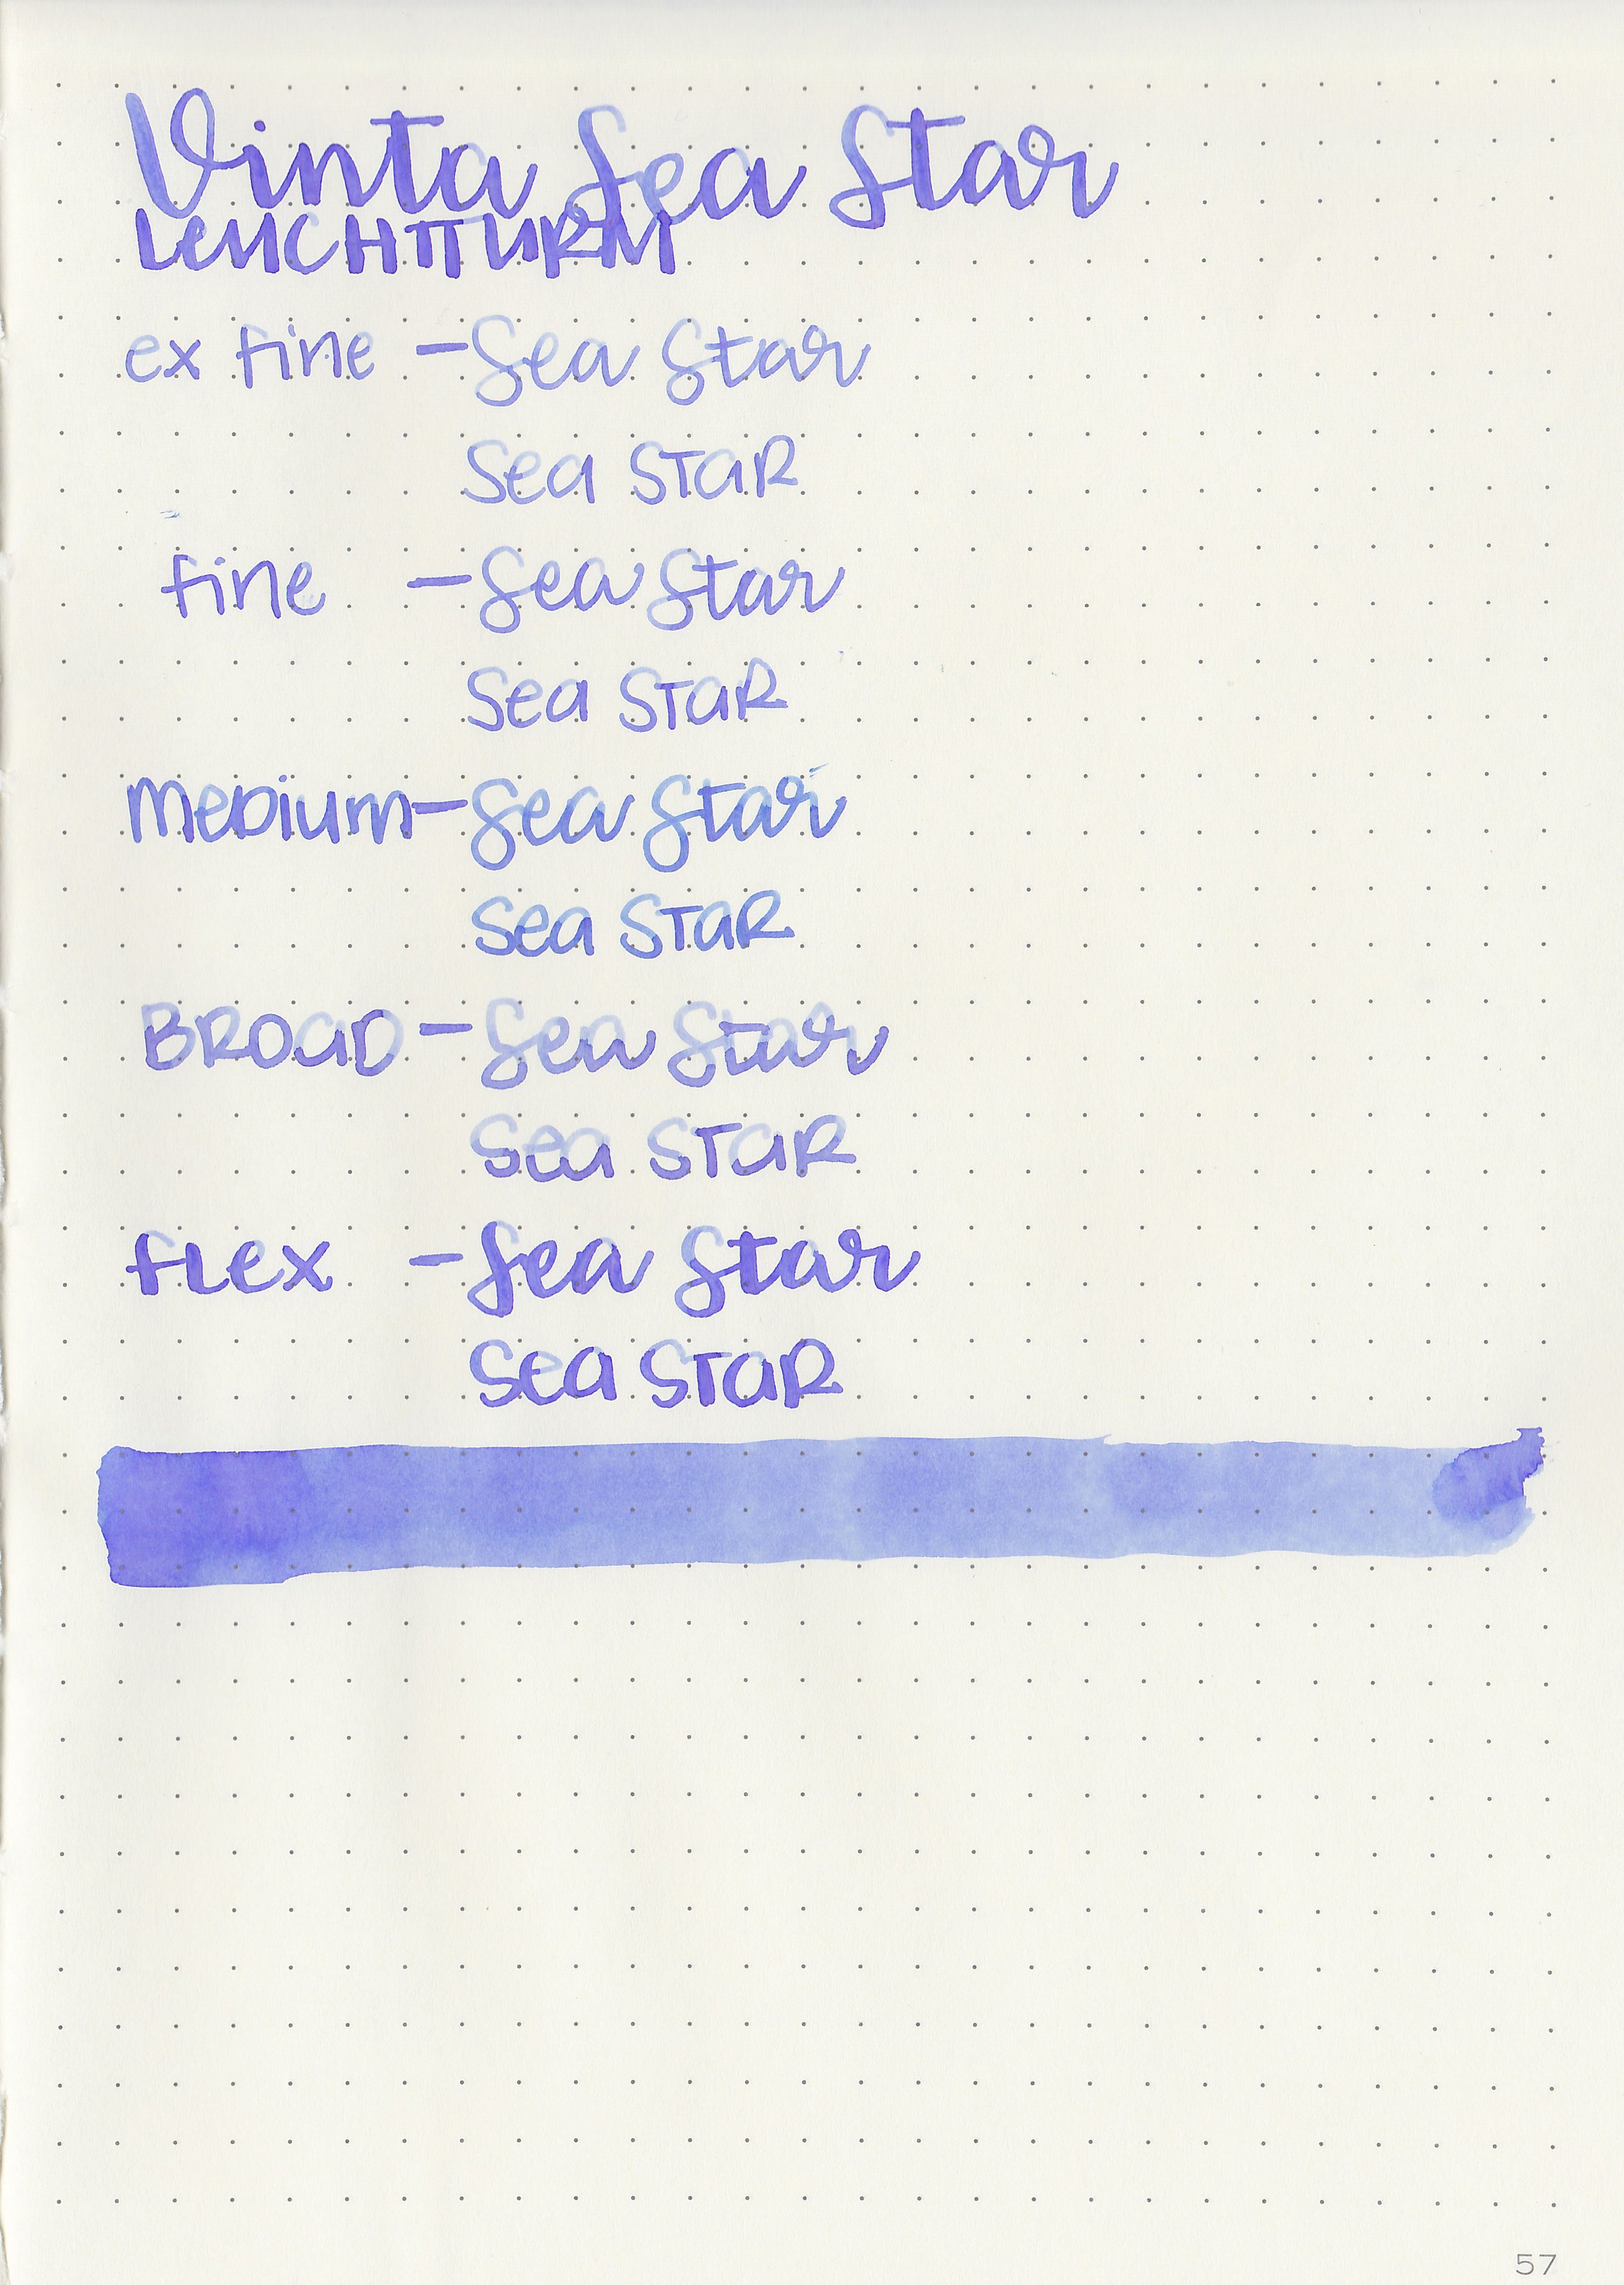 Vinta Sea Star
LEUCHTTURM
ex fine - Sea Star
Sea STAR
fine - Sea Star
Sea STAR
Medium - Sea Star
Sea STAR
BROAD - Sea Star
Sea STAR
fLex - Sea Star
Sea STAR
57